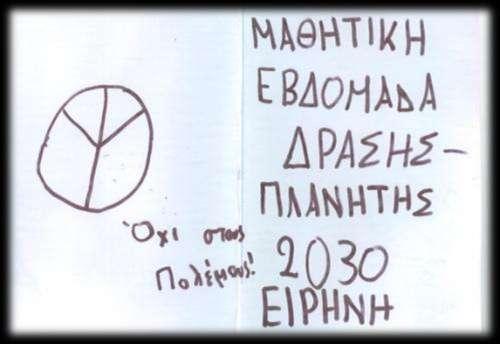 ΜΑΘΗΤΙΚΗ
ΕΒΔΟΜΑΔΑ
ΔΡΑΣΗΣ-
ΠΛΑΝΗΤΗΣ
2030
ΕΙΡΗΝΗ
Όχι στους
Πολέμους!